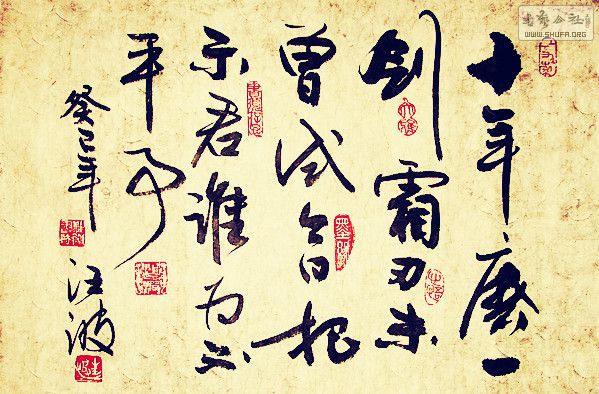 十年磨一
剑霜刃未
曾试今日把
示君谁为不
平事
癸巳年
汪波
書藝公社
WWW.SHUFA.ORG